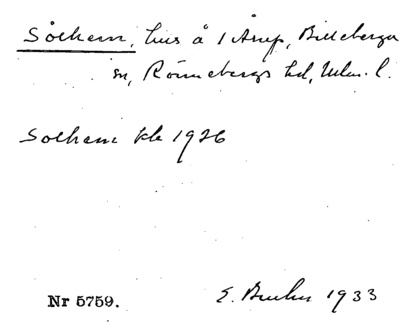 Solhem, hus å 1 Årup, Billeberga
sn, Rönnebergs hd, Mlm. l.
Solhem kb 1926
Nr 5759. E. 1933